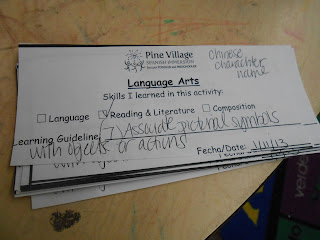 Pine Village
SPANISH IMMERSION
chinese
charachter
name
Language Arts
Skills I learned in this activity:
Language Reading & Literature Composition
Learning Guideline 7) Associate pictorial symbols
with objects or actions
Fecha/Date:
Fecha/Da